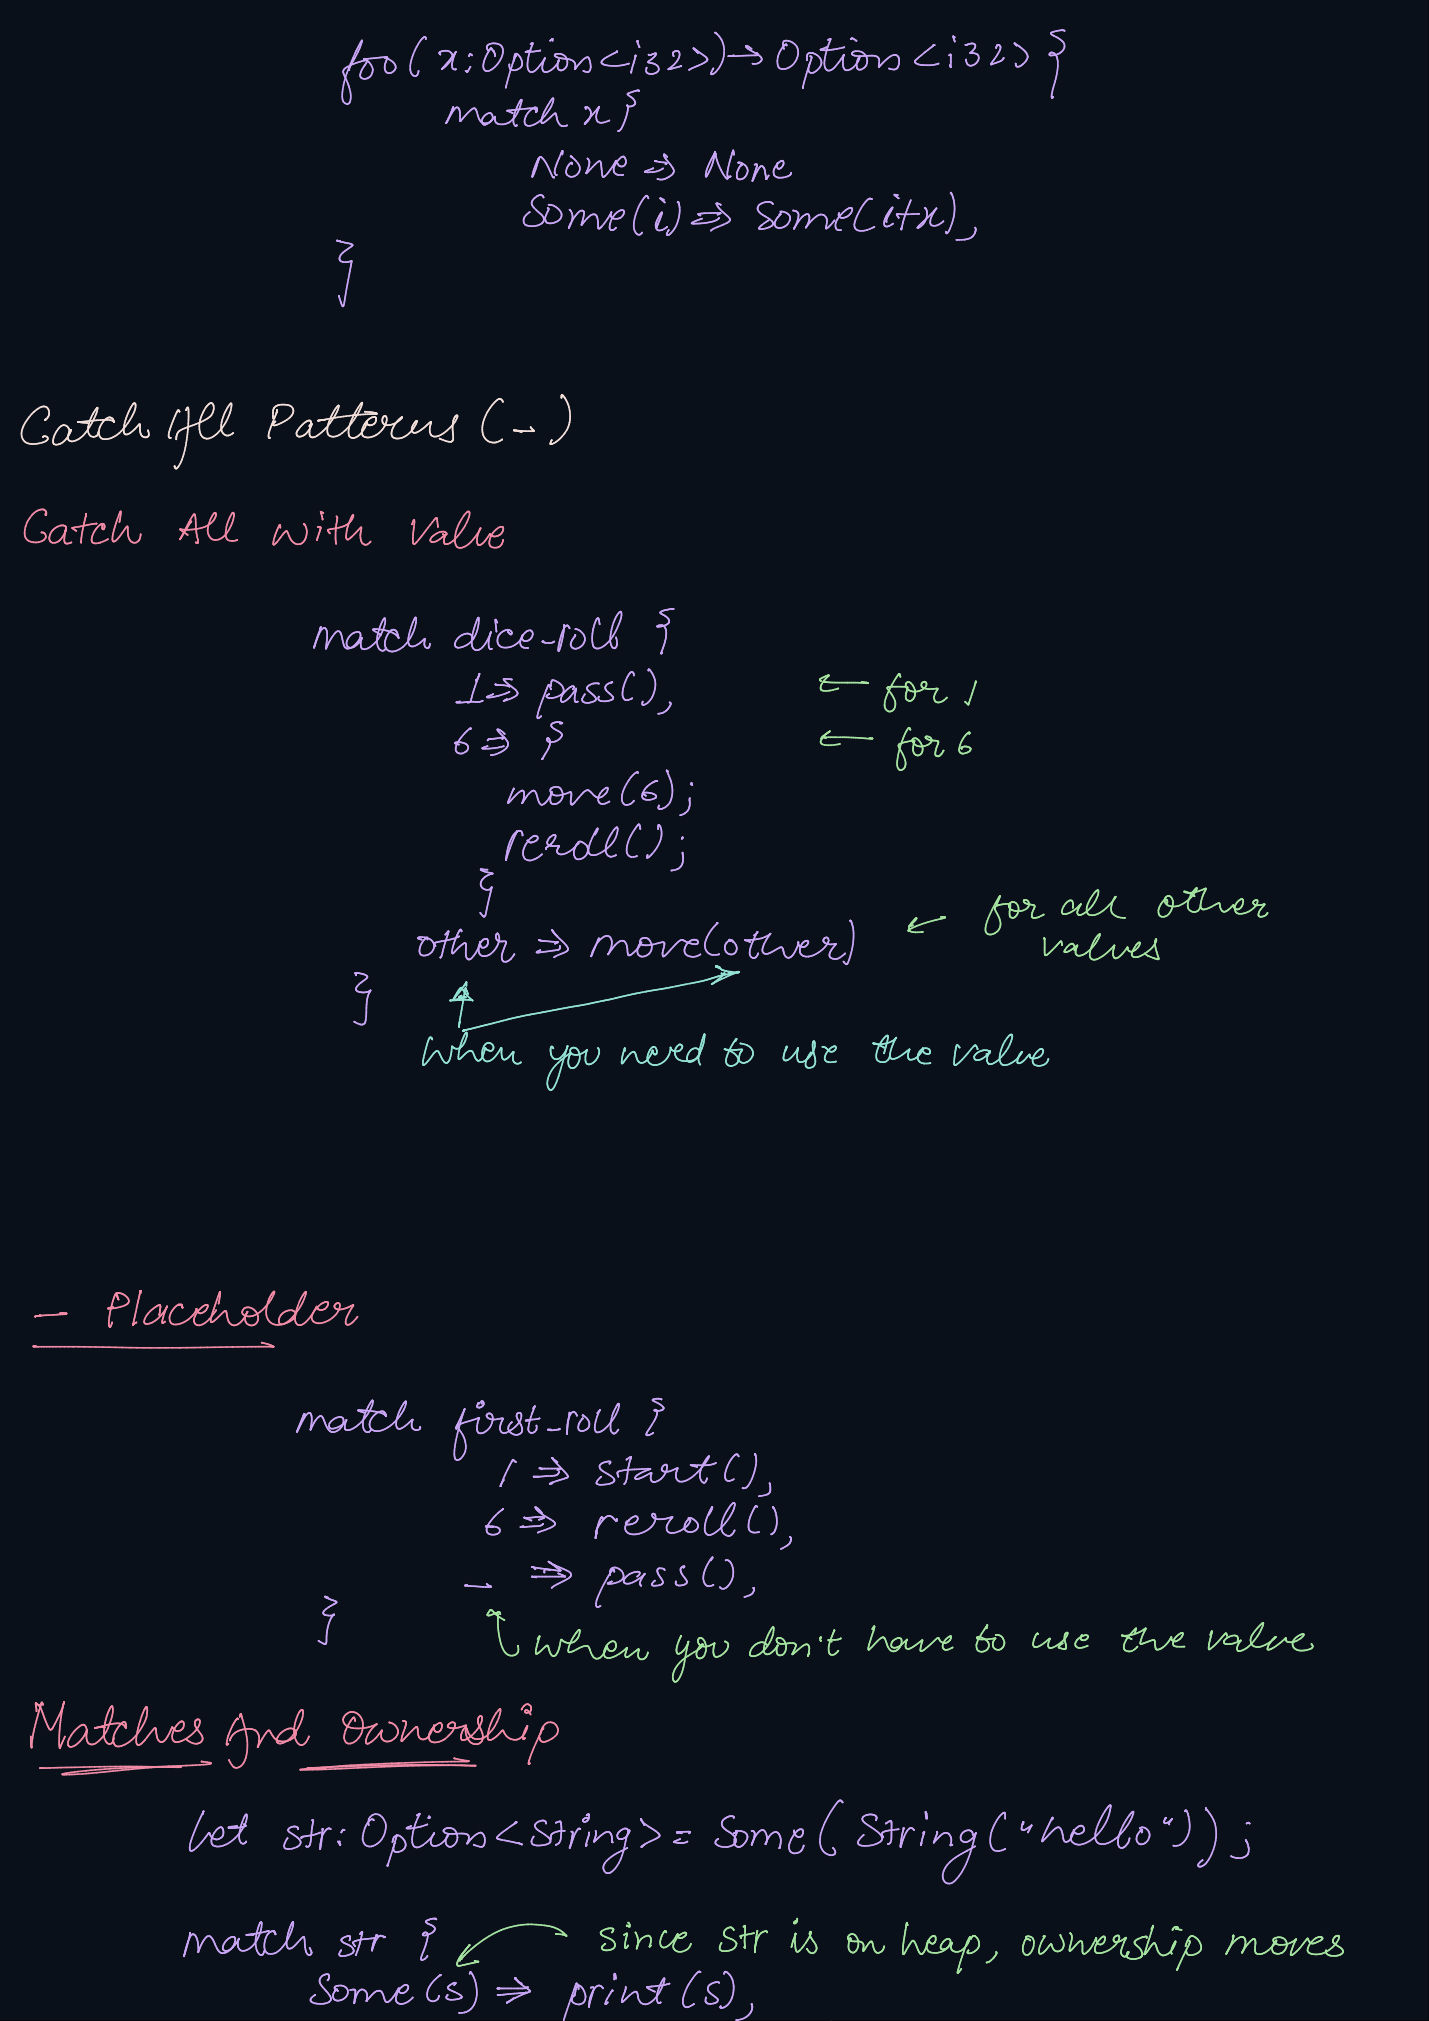 foo(x:Option<i32>)→Option<i32>{
match x{
None ⇒ None
Some(i)⇒ Some(i+x),
}
Catch All Patterns (_)
Catch All with Value
match dice_roll {
1⇒ pass(), ← for 1
6⇒ { ← for 6
move(6);
reroll();
}
other ⇒ move(other) ← for all other
values
}
when you need to use the value
_ Placeholder
match first_roll {
1 ⇒ start(),
6 ⇒ reroll(),
_ ⇒ pass(),
}
when you don't have to use the value
Matches And Ownership
let str:Option<String>= Some(String("hello"));
match str { since str is on heap, ownership moves
Some(s) ⇒ print(s),